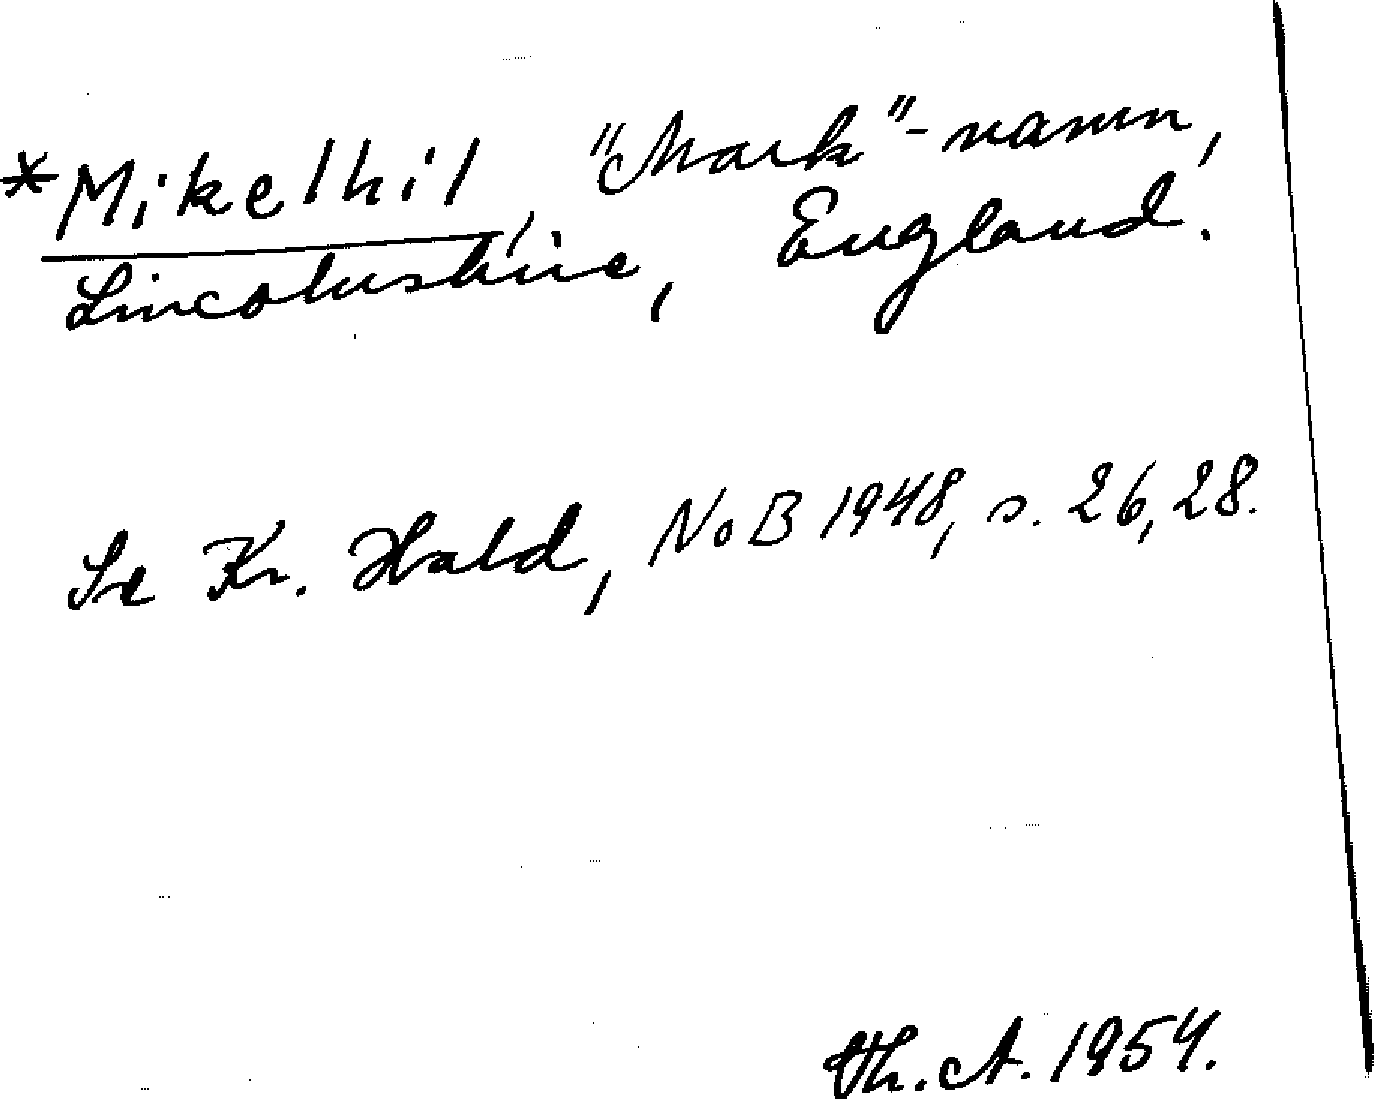 *Mikelhil, "Mark"-namn,
Lincolnshire, England.
Se Kr. Hald, NoB 1948, s. 26, 28.
Th. A. 1954.